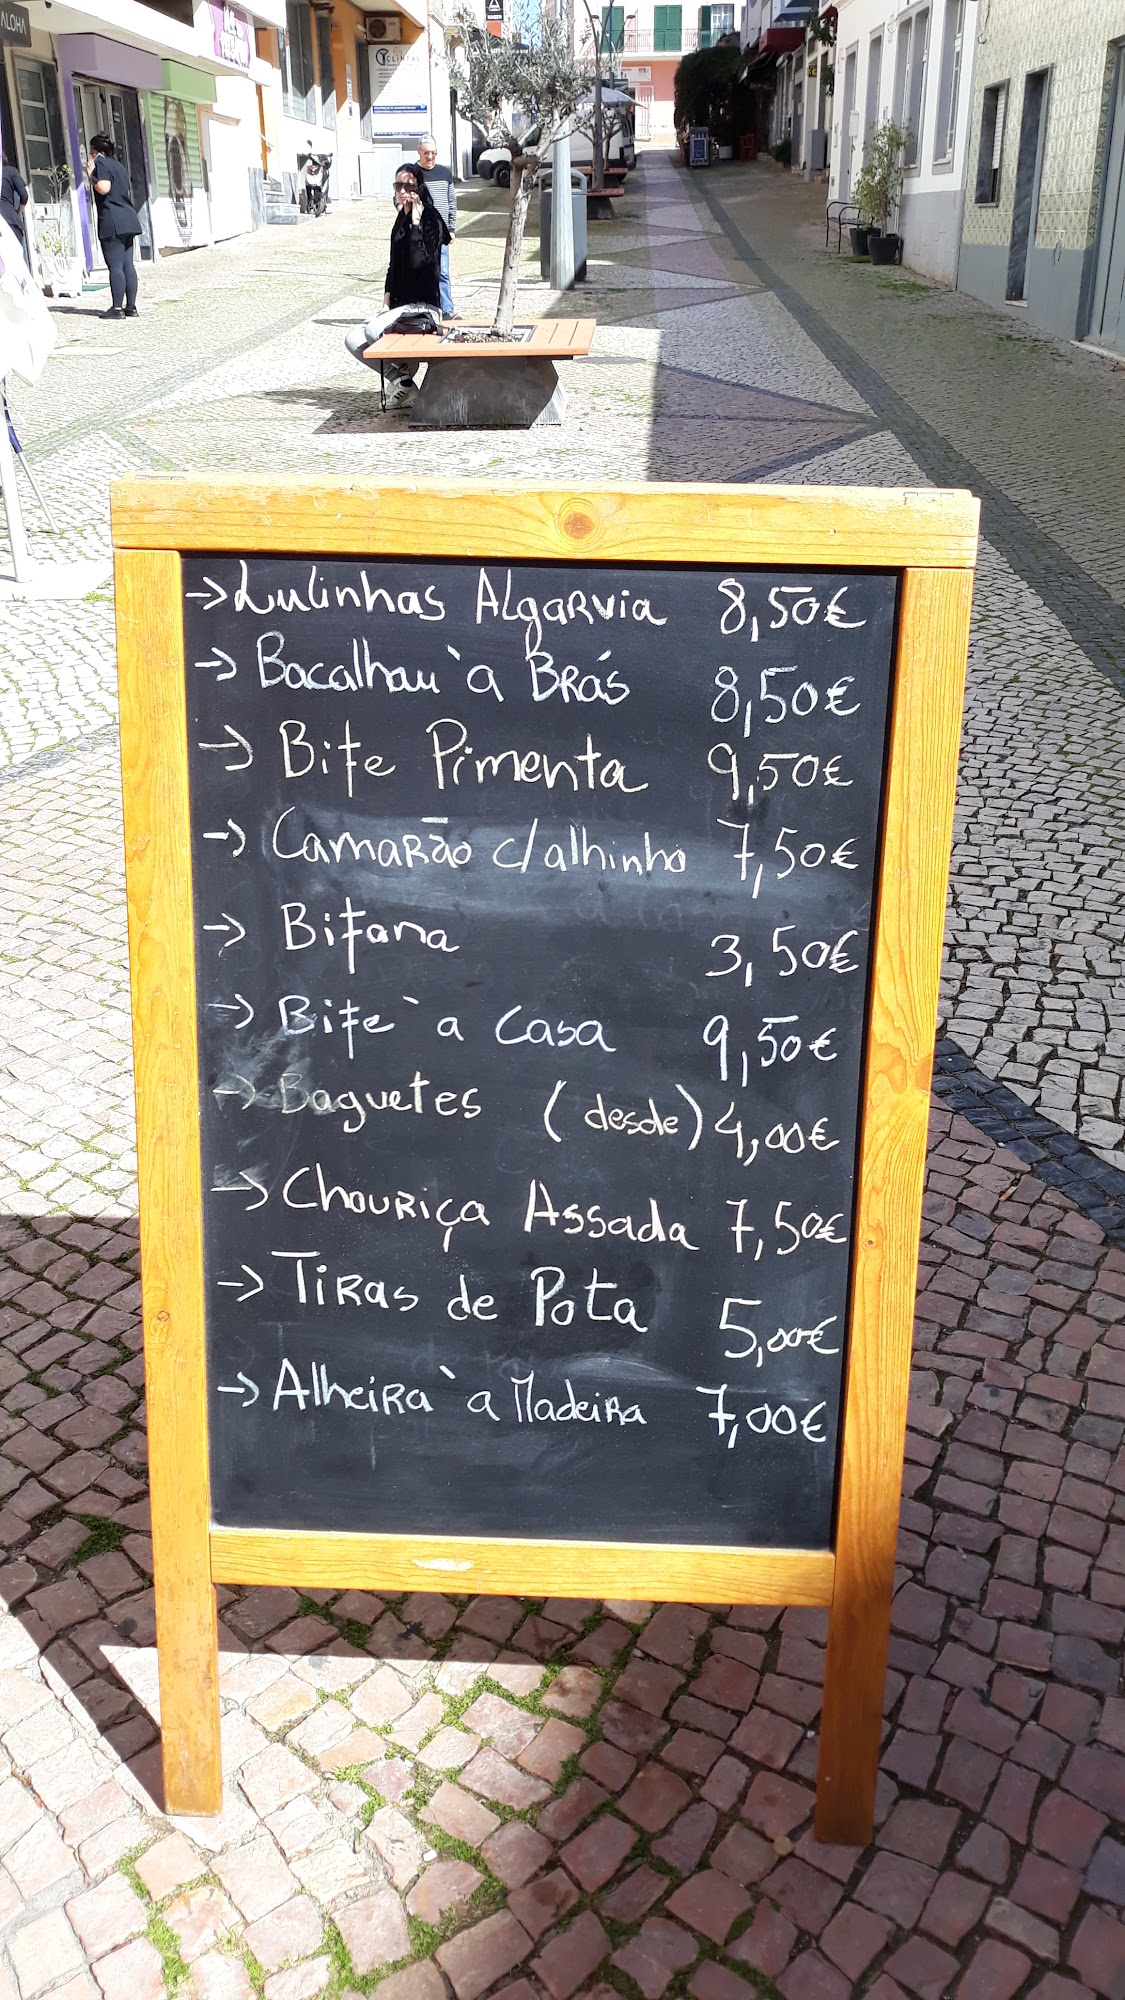 ALOHA
CLINFAL
→ Lulinhas Algarvia 8,50€
→ Bacalhau à Brás 8,50€
→ Bife Pimenta 9,50€
→ Camarão c/alhinho 7,50€
→ Bifana 3,50€
→ Bife à Casa 9,50€
→ Baguetes (desde) 4,00€
→ Chouriça Assada 7,50€
→ Tiras de Pota 5,00€
→ Alheira à Madeira 7,00€